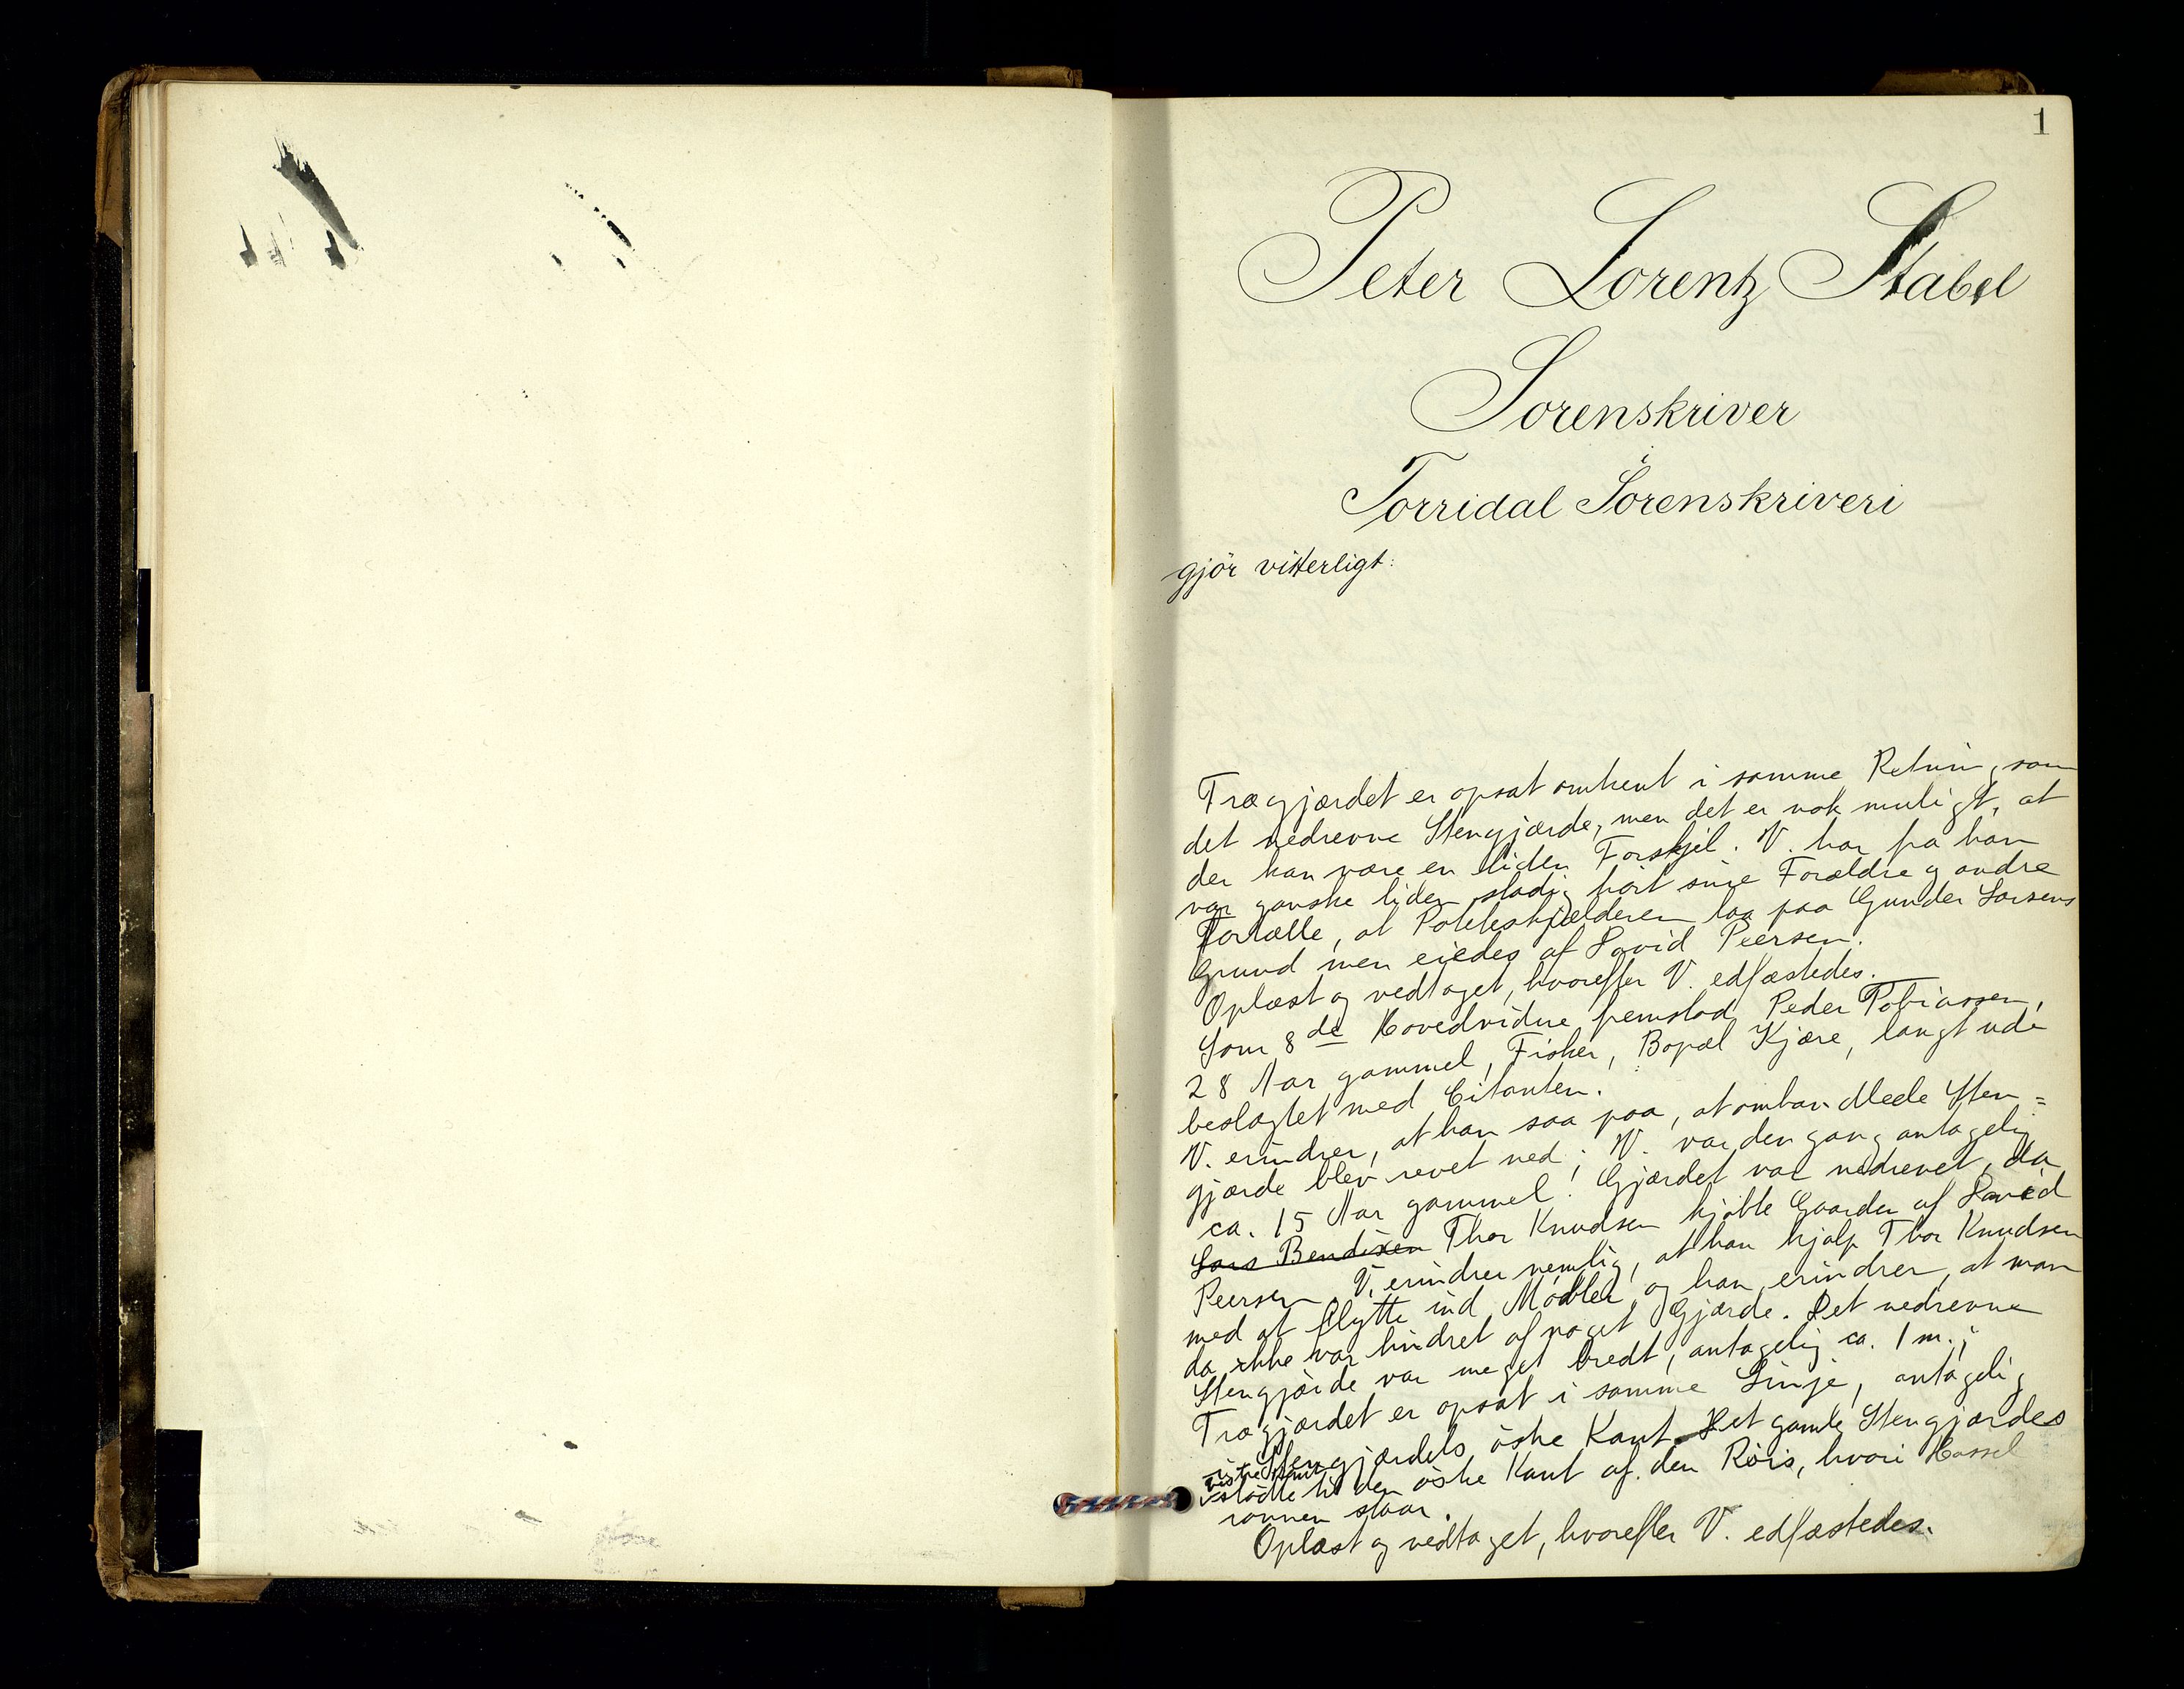 1
Peter Lorentz Stabel
Sorenskriver
i
Torridal Sorenskriveri
gjör vitterligt:
Trægjærdet er opsat omtrent i samme Retning, som
det nedrevne Stengjærde, men det er nok muligt, at
der kan være en liden Forskjel. V. har fra han
var ganske liden stadig hört sine Forældre og andre
fortælle, at Potteskjælderen laa paa Gunder Larsens
Grund men eiedes af David Peersen.
Oplæst og vedtaget, hvorefter V. edfæstedes.
Som 8de Hovedvidne fremstod Peder Tobiassen,
28 Aar gammel, Fisker, Bopæl Kjære, langt ude
beslagtet med Citanten.
V. erindrer, at han saa paa, at omhandlede Sten=
gjærde blev revet ned; V. var den gang antagelig
ca. 15 Aar gammel. Gjærdet var nedrevet, da
Lars Bendixen Thor Knudsen kjöbte Gaarden af David
Peersen. V. erindrer nemlig, at han hjalp Thor Knudsen
med at flytte ind Möbler og han erindrer, at man
da ikke var hindret af noget Gjærde. Det nedrevne
Stengjærde var meget bredt, antagelig ca. 1 m.;
Trægjærdet er opsat i samme Linje, antagelig
i Stengjærdets östre Kant. Det gamle Stengjærdes
vestre Kant
stödte til den östre Kant af den Röis, hvori Hassel
rönnen staar.
Oplæst og vedtaget, hvorefter V. edfæstedes.